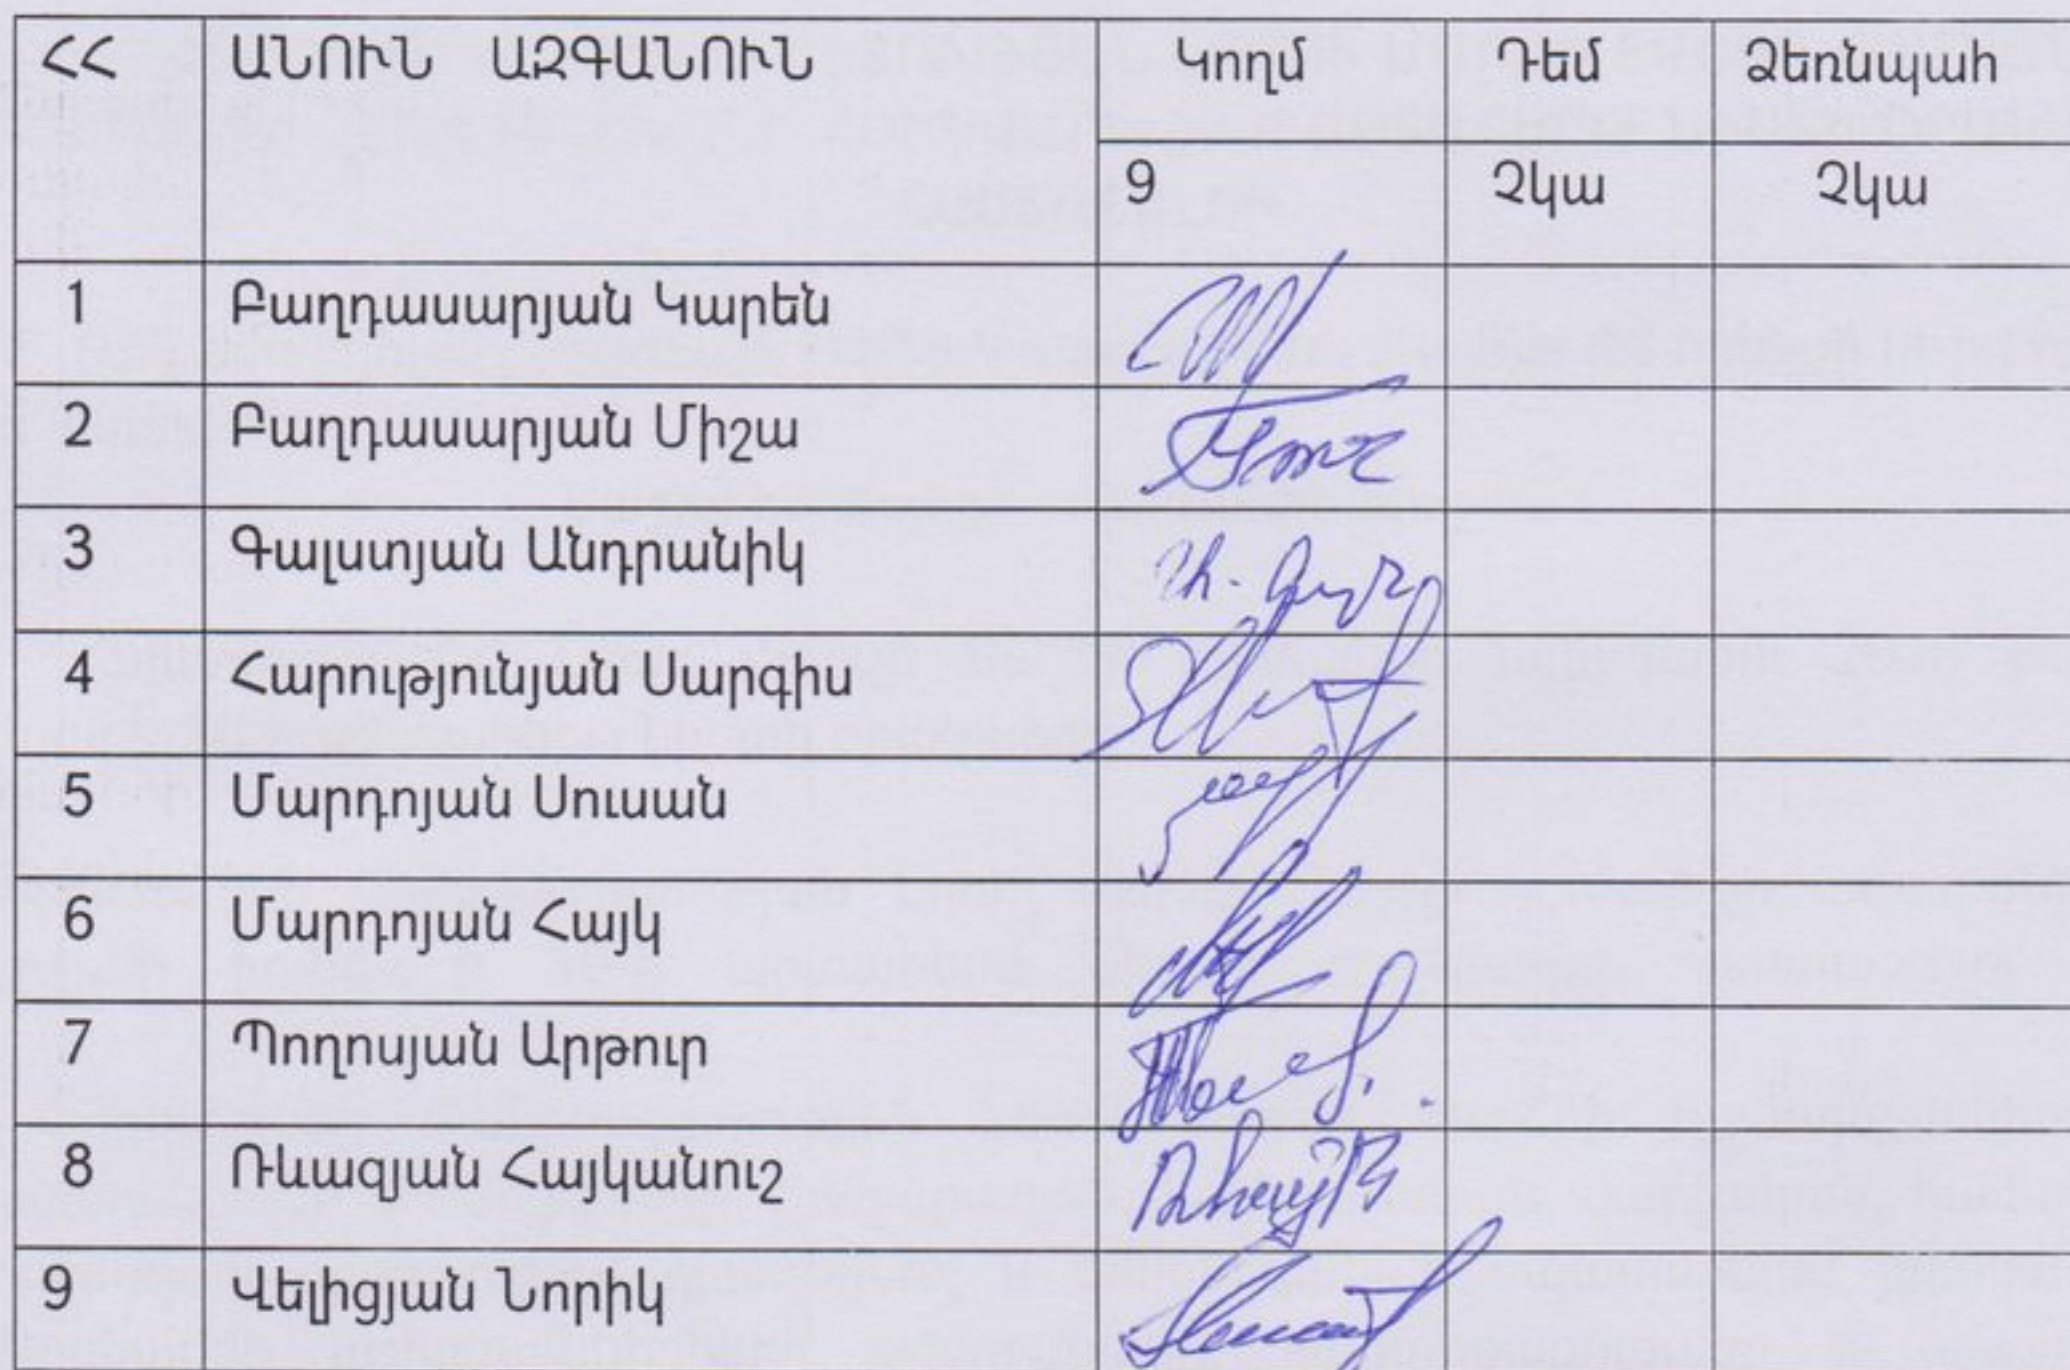 ՀՀ ԱՆՈՒՆ ԱԶԳԱՆՈՒՆ Կողմ Դեմ Ձեռնպահ
9 Չկա Չկա
1 Բաղդասարյան Կարեն
2 Բաղդասարյան Միշա
3 Գալստյան Անդրանիկ
4 Հարությունյան Սարգիս
5 Մարդոյան Սուսան
6 Մարդոյան Հայկ
7 Պողոսյան Արթուր
8 Ռևազյան Հայկանուշ
9 Վելիցյան Նորիկ